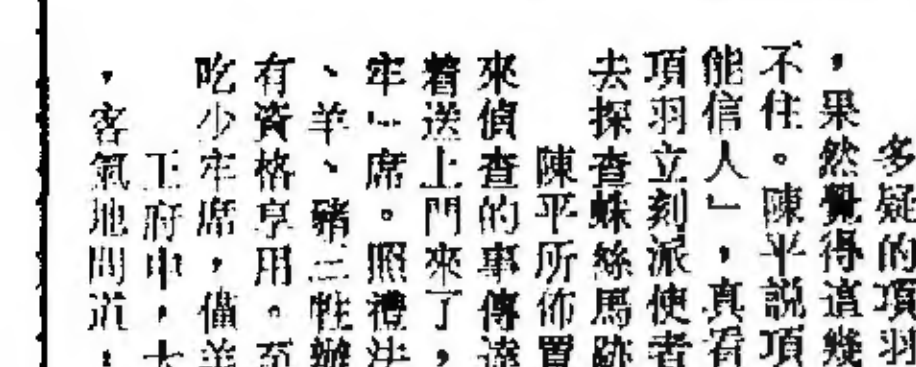 多疑的項羽
，果然覺得這幾
不住。陳平説項
能信人」，真看
項羽立刻派使者
去探查蛛絲馬跡
陳平所佈置
來偵查的事傳達
着送上門來了，
牢」席。照禮法
、羊、豬三牲辦
有資格享用。至
吃少牢席，僅羊
王府中，大
，客氣地問道：